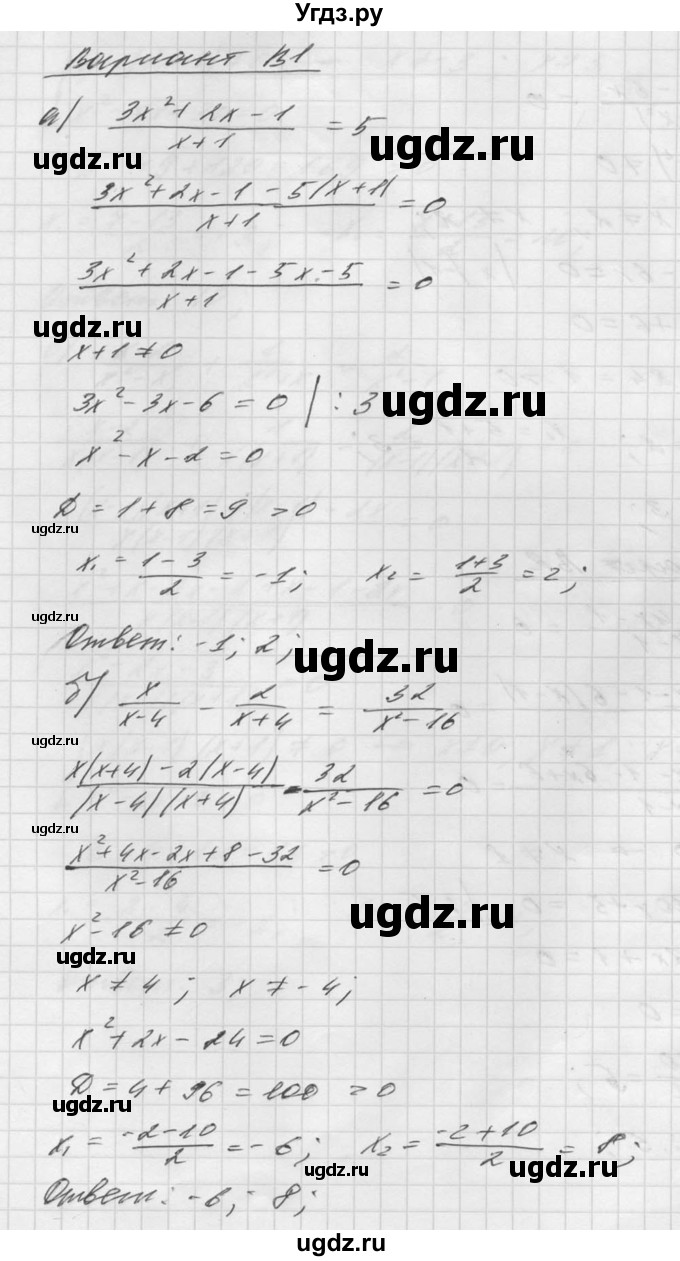 Угдз.ру
Вариант В1
а) (3x²+2x-1)/(x+1) = 5
ugdz.ru ugdz.ru
(3x²+2x-1-5(x+1))/(x+1) = 0
(3x²+2x-1-5x-5)/(x+1) = 0
ugdz.ru
x+1≠0
3x²-3x-6=0 |:3
ugdz.ru
x²-x-2=0
Д=1+8=9 >0
ugdz.ru
x₁ = (1-3)/2 = -1; x₂ = (1+3)/2 = 2;
ugdz.ru
Ответ: -1; 2;
ugdz.ru
б) x/(x-4) - 2/(x+4) = 32/(x²-16)
ugdz.ru
(x(x+4)-2(x-4))/((x-4)(x+4)) - 32/(x²-16) = 0
ugdz.ru
(x²+4x-2x+8-32)/(x²-16) = 0
ugdz.ru
x²-16≠0
ugdz.ru
x≠4; x≠-4;
x²+2x-24=0
Д=4+96=100 >0
ugdz.ru
x₁ = (-2-10)/2 = -6; x₂ = (-2+10)/2 = 8;
ugdz.ru
Ответ: -6; 8;
ugdz.ru
ugdz.ru